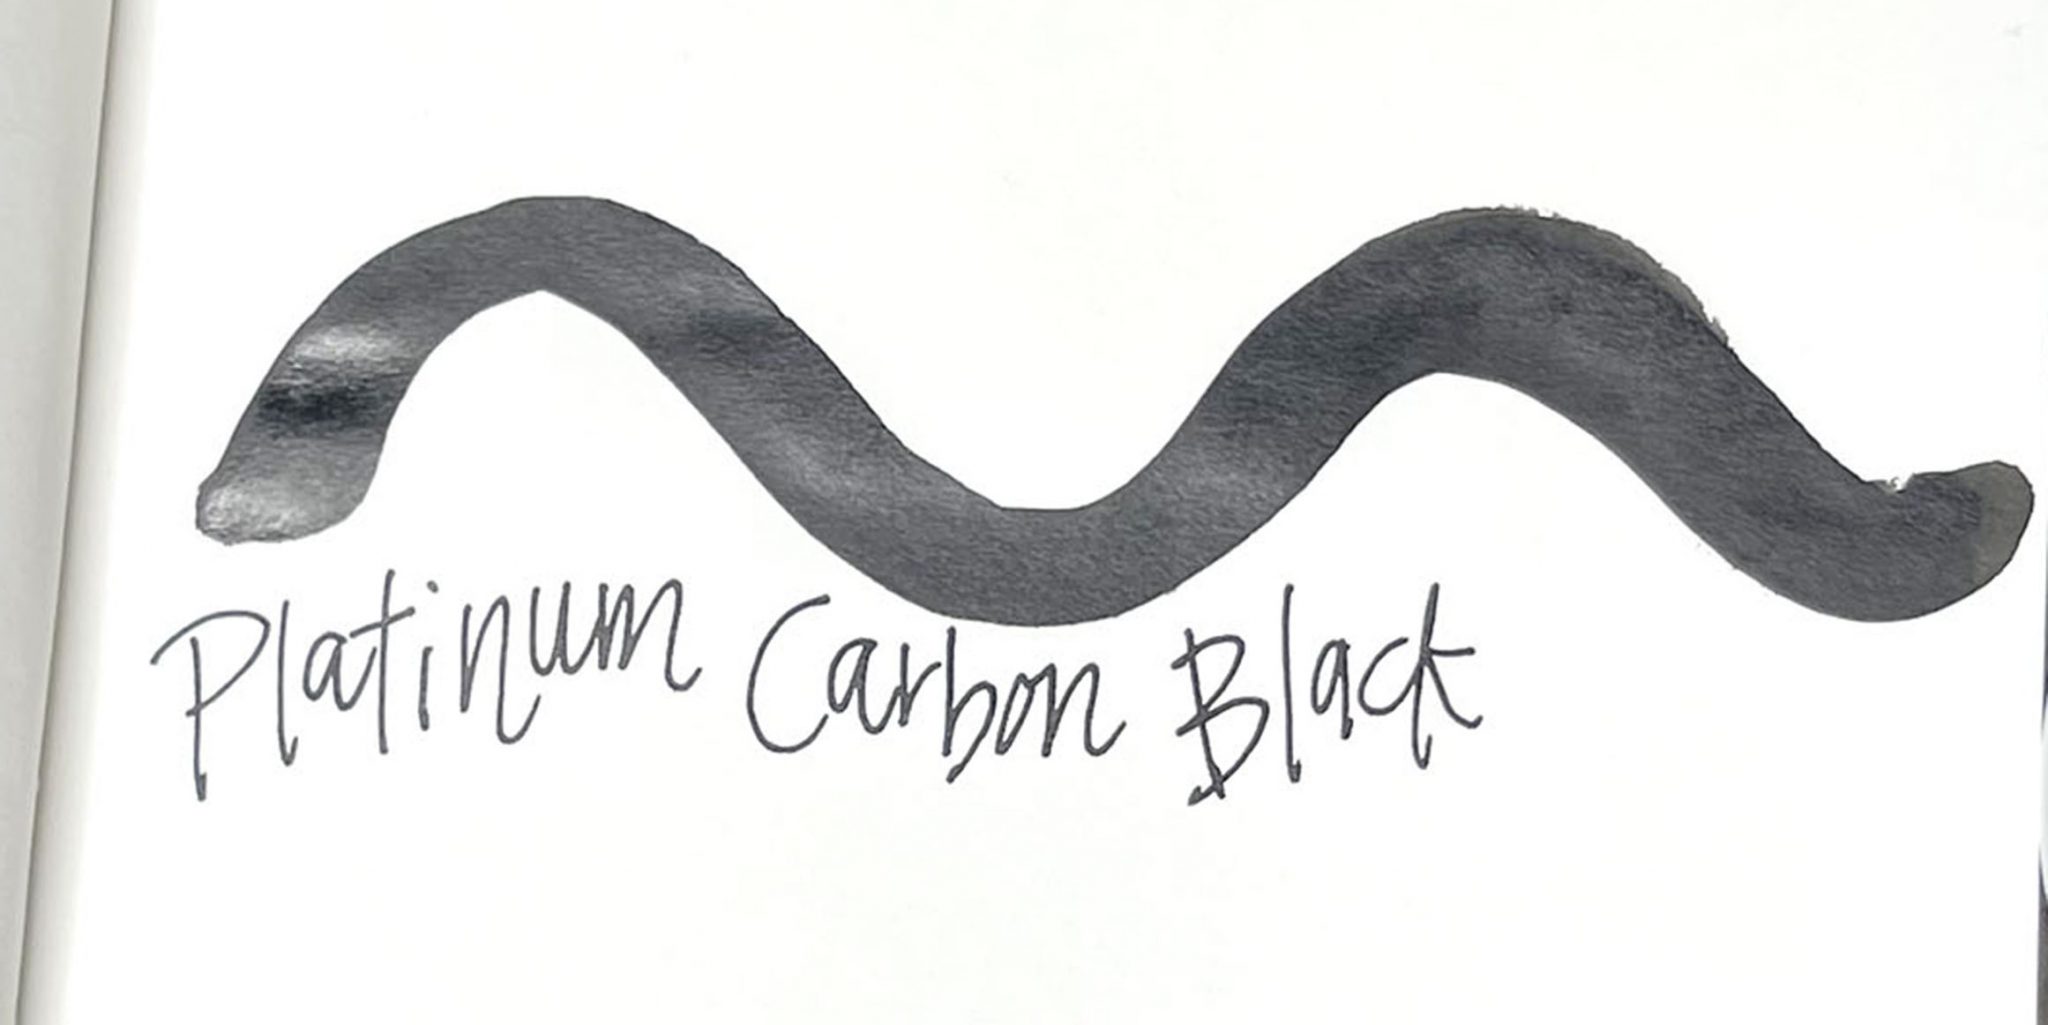 Platinum Carbon Black